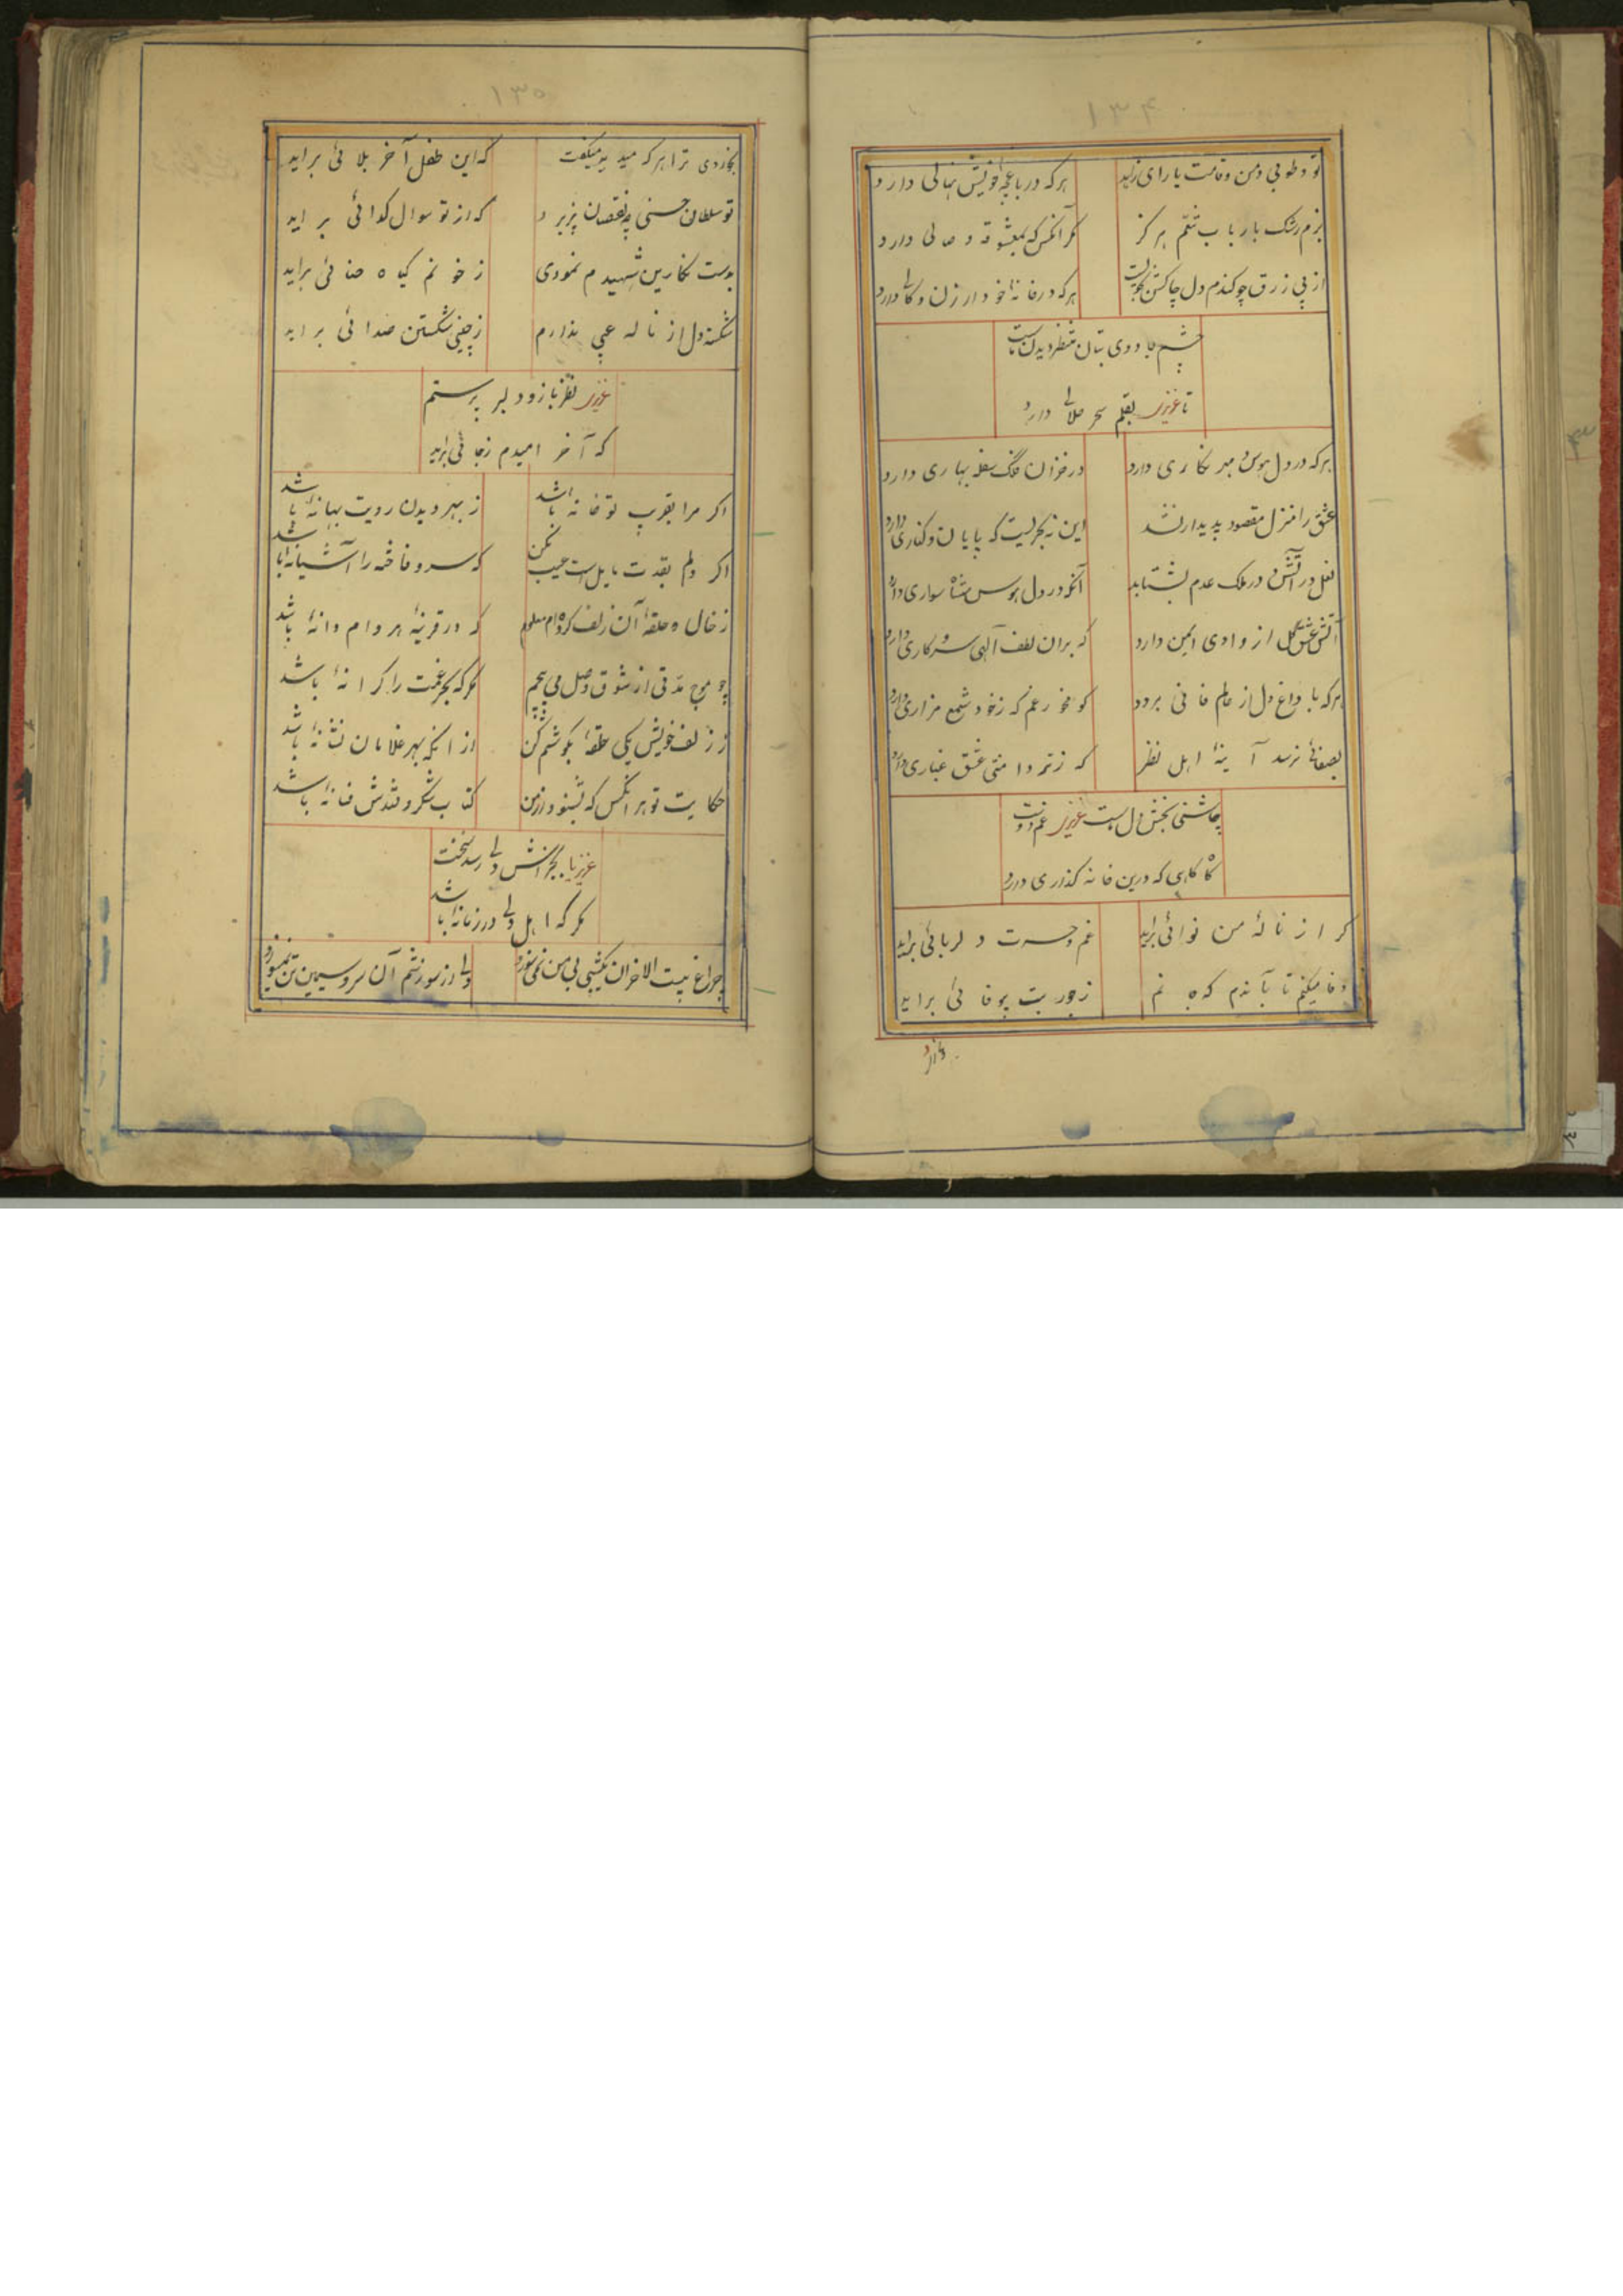 ۱۳۴
تو و طوبی و من و قامت یار ای زاهد هر که در باغچهٔ خویش نهالی دارد
نبرم رشک بارباب تنعم هرکز مکر آنکس که بمعشوقه وصالی دارد
از پی رزق چو کندم دل چاکش هر که در خانهٔ خود از زن و
چشم جادوی بتان منتظر دیدن ماست
تا عزیزی بقلم سحر حلالی دارد
هر که در دل هوس مهر نکاری دارد در خزان فلک سفله بهاری دارد
عشق را منزل مقصود پدیدار نشد این نه بحریست که پایان و کناری دارد
نعل در آتش و در ملک عدم بشتابد آنکه در دل هوس شاه سواری دارد
آتش عشق کل از وادی ایمن دارد که بران لطف آلهی سر و کاری دارد
هر که با داغ دل از عالم فانی برود کو مخور غم که ز خود شمع مزاری دارد
بصفائی نرسد آینهٔ اهل نظر که ز تر دامنی عشق غباری دارد
چاشنی بخش دل تست عزیزی غم دوست
کاه کاهی که درین خانه کذاری دارد
کر از نالهٔ من نوائی براید غم و حسرت دلربائی براید
وفا میکنم تا بآندم که جانم ز جور بت بیوفائی براید
۱۳۵
ترا هر که میدید میکفت که این طفل آخر بلائی براید
تو سلطان حسنی چه نقصان پذیرد که از تو سوال کدائی براید
بدست نکارین شهیدم نمودی ز خونم کیاه حنائی براید
شکسته دل از ناله عیبی ندارم ز چینی شکستن صدائی براید
عزیزی نظرباز و دلبر پرستم
که آخر امیدم ز جائی براید
اکر مرا بقرب تو خانه باشد ز بهر دیدن رویت بهانهٔ باشد
اکر دلم بقدت مایل است عیب مکن که سرو فاخته را آشیانه باشد
ز خال و حلقهٔ آن زلف کرده‌ام معلوم که در قرینهٔ هر دام دانهٔ باشد
چو موج مدتی از شوق وصل می پیچم مکر که بحر غمت را کرانهٔ باشد
ز زلف خویش یکی حلقهٔ بکوشم کن از انکه بهر غلامان نشانهٔ باشد
حکایت تو هر انکس که بشنود از من کتاب شکر و قندش فسانهٔ باشد
عزیزیا
مکر که اهل دلی در زمانهٔ باشد
چراغ بیت الاخزان یکشبی بی من نمی سوزد ولی از سوزشم آن سرو سیمین تن نمیسوزد